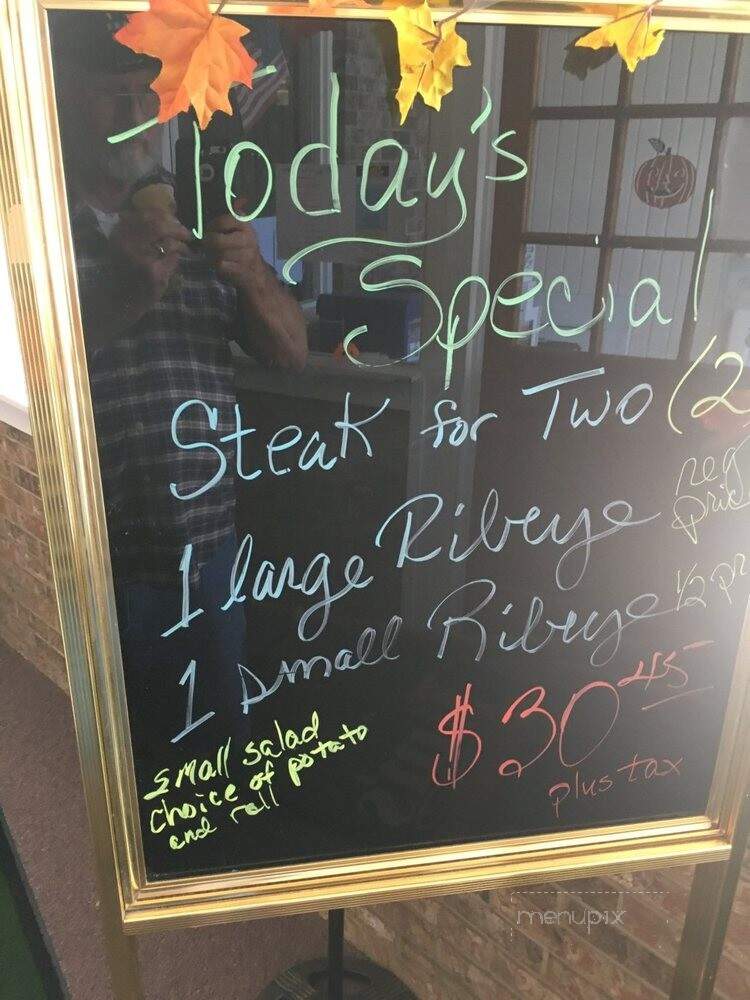 Today's
Special
Steak for Two (2
1 large Ribeye reg
price
1 small Ribeye 1/2 pr
$30.45
plus tax
small salad
choice of potato
and roll
menupix